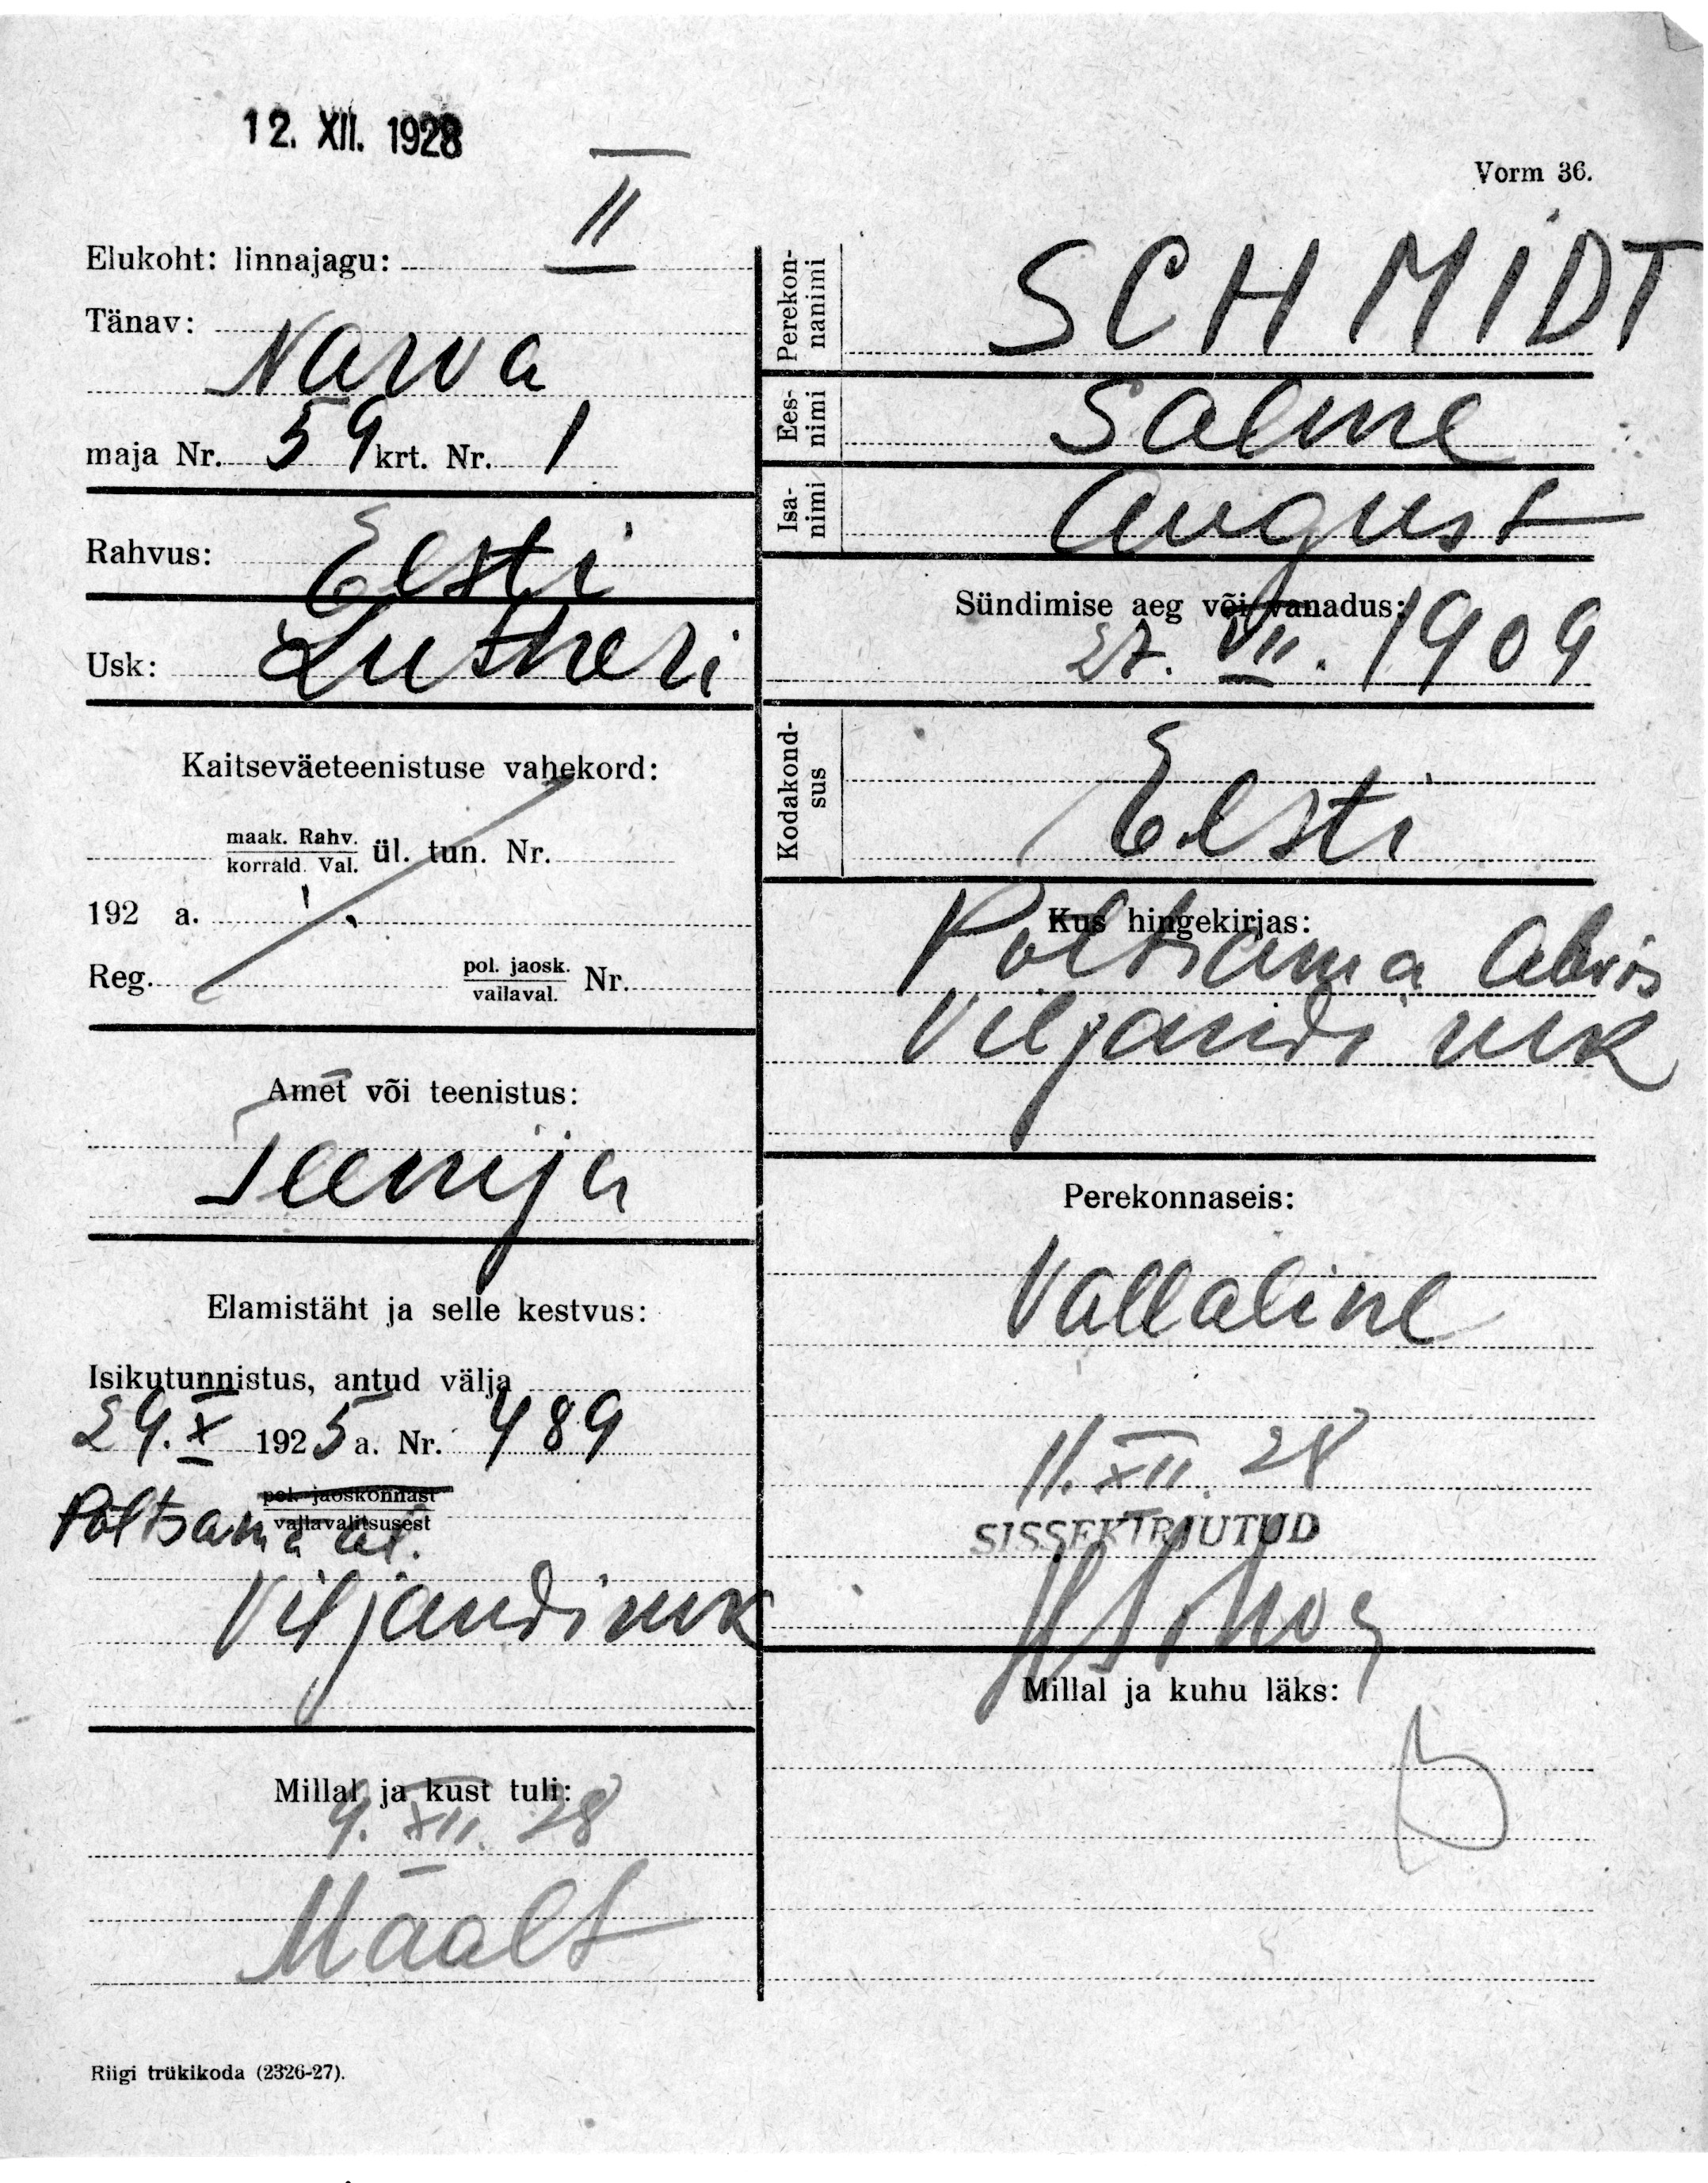 12. XII. 1928
Vorm 36.
Elukoht: linnajagu: II
Tänav:
Narva
maja Nr. 59 krt. Nr. 1
Rahvus: Eesti
Usk: Lutheri
Kaitseväeteenistuse vahekord:
maak. Rahv.
korrald. Val. ül. tun. Nr.
192 a.
Reg. pol. jaosk.
vallaval. Nr.
Amet või teenistus:
Teenija
Elamistäht ja selle kestvus:
Isikutunnistus, antud välja
29. X 1925 a. Nr. 489
pol. jaoskonnast
Põltsama al. vallavalitsusest
Viljandi mk
Millal ja kust tuli:
9. XII. 28
Maalt
Perekon-
nanimi SCHMIDT
Ees-
nimi Salme
Isa-
nimi August
Sündimise aeg või vanadus:
27. VII. 1909
Kodakond-
sus Eesti
Kus hingekirjas:
Põltsama
Viljandi mk
Perekonnaseis:
Vallaline
11. XII. 28
SISSEKIRJUTUD
Millal ja kuhu läks:
Riigi trükikoda (2326-27).